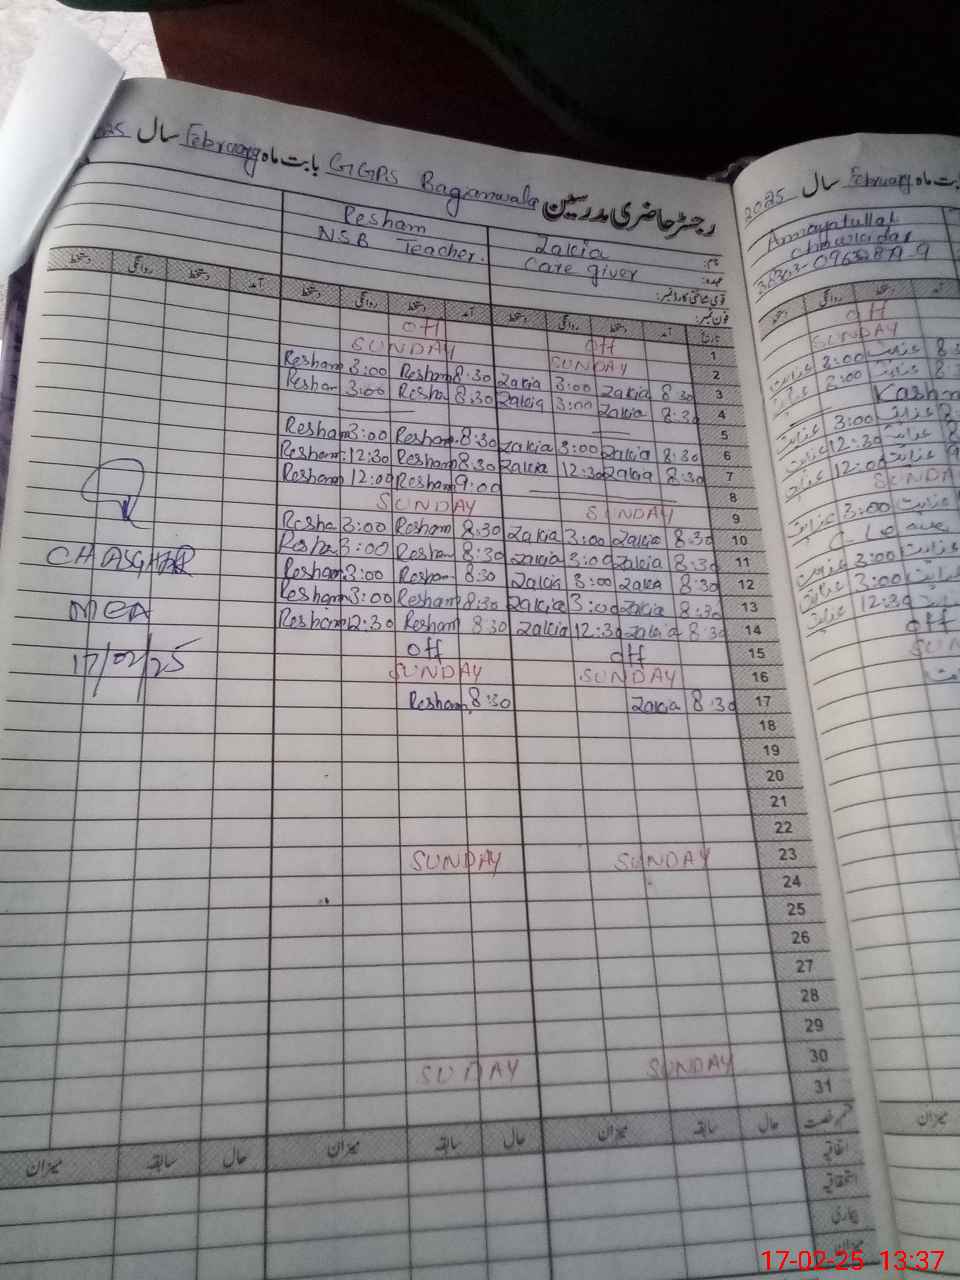 رجسٹر حاضری مدرسین GGPS Baganwala بابت ماہ February سال 2025
نام: Zakia Resham
عہدہ: Care giver NSB Teacher.
قومی شناختی کارڈ نمبر:
فون نمبر:
تاریخ آمد دستخط روانگی دستخط آمد دستخط روانگی دستخط آمد دستخط روانگی دستخط
1 off off
2 SUNDAY SUNDAY
3 8:30 Zakia 3:00 Zakia 8:30 Resham 3:00 Resham
4 8:30 Zakia 3:00 Zakia 8:30 Resha 3:00 Resham
5
6 8:30 Zakia 3:00 Zakia 8:30 Resham 3:00 Resham
7 8:30 Zakia 12:30 Zakia 8:30 Resham 12:30 Resham
8 9:00 Resham 12:00 Resham
9 SUNDAY SUNDAY
10 8:30 Zakia 3:00 Zakia 8:30 Resham 3:00 Resha
11 8:30 Zakia 3:00 Zakia 8:30 Resham 3:00 Resha
12 8:30 Zakia 3:00 Zakia 8:30 Resham 3:00 Resham
13 8:30 Zakia 3:00 Zakia 8:30 Resham 3:00 Resham
14 8:30 Zakia 12:30 Zakia 8:30 Resham 12:30 Resham
15 off off
16 SUNDAY SUNDAY
17 8:30 Zakia 8:30 Resham
18
19
20
21
22
23 SUNDAY SUNDAY
24
25
26
27
28
29
30 SUNDAY SUNDAY
31
CH ASGHAR
MEA
17/02/25
قسم رخصت حال سابقہ میزان حال سابقہ میزان حال سابقہ میزان
اتفاقیہ
استحقاقیہ
بیماری
میزان
بابت ماہ February سال 2025
Amayatullah
Chowkidar
38303-0963287-9
روانگی دستخط
off
SUNDAY
3:00 عنایت
3:00 عنایت
Kashm
3:00 عنایت
12:30 عنایت
12:00 عنایت
SUND
3:00 عنایت
Leave
3:00 عنایت
3:00 عنایت
12:30 عنایت
off
SUN
میزان
17-02-25 13:37